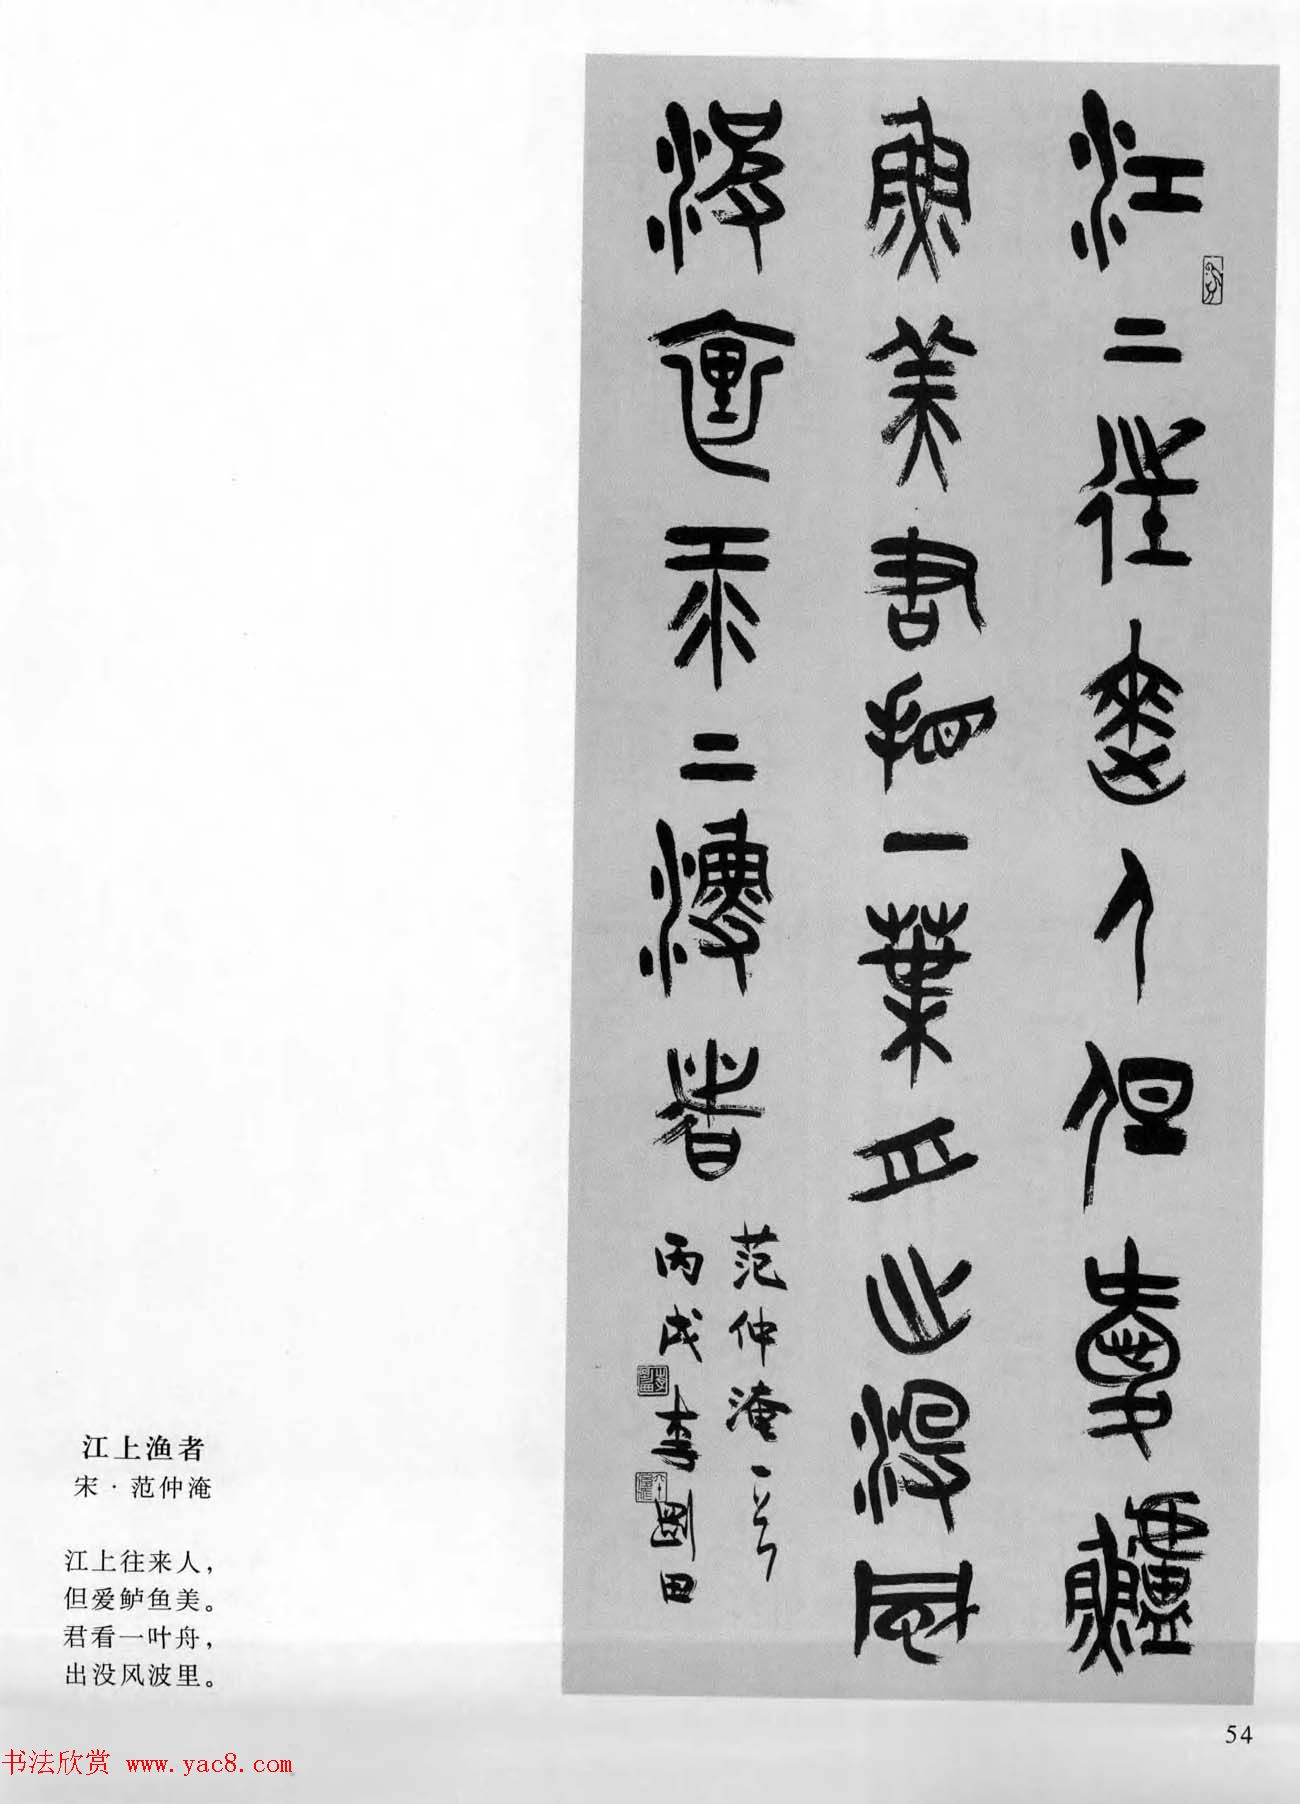 江上往來人但愛鱸
魚美君看一葉舟出沒風
波裏示上漁者
范仲淹一首
丙戌李剛田
江上渔者
宋·范仲淹
江上往来人，
但爱鲈鱼美。
君看一叶舟，
出没风波里。
54
书法欣赏 www.yac8.com